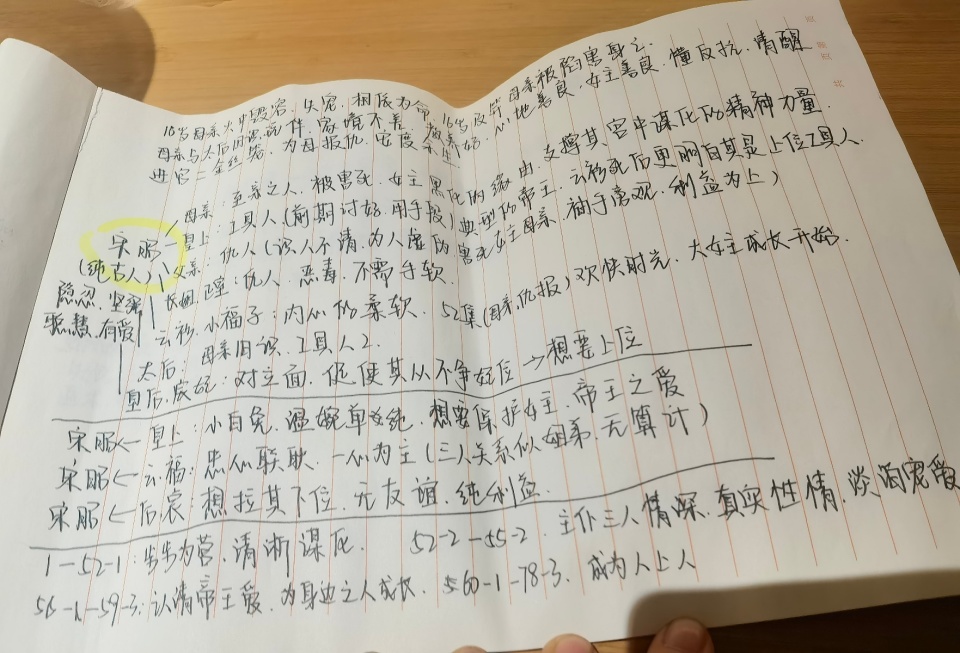 10岁母亲火中毁容，失宠，相依为命，16岁及笄母亲被陷害身亡
母亲与太后旧识，家境不善，心地善良，女主善良，懂反抗，清醒
进宫二，为母报仇
母亲：至亲之人，被害死，女主黑化的缘由，支撑其宫中谋化的精神力量
皇上：工具人（前期讨好，用手段）典型的帝王，云衫死后更明白其是上位工具人
宋昭
(纯古人)
父亲：仇人（识人不清，为人虚伪，害死女主母亲，袖手旁观，利益为上）
长姐，正室：仇人，恶毒，不需手软
隐忍，坚强
聪慧，有爱
云衫，小福子：内心的柔软，52集(母亲仇报)欢快时光，大女主成长开始
太后：母亲旧识，工具人2
皇后，宸妃：对立面，促使其从不争妃位→想要上位
宋昭←皇上：小白兔，温婉单纯，想要保护女主，帝王之爱
宋昭←云福：忠心耿耿，一心为主（三人关系似姐弟，无算计）
宋昭←后宸：想拉其下位，无友谊，纯利益
1-52-1：步步为营，清淅谋化 52-2-55-2：主仆三人情深，真实性情，淡泊宠爱
56-1-59-3：认清帝王爱，为身边之人成长 60-1-78-3：成为人上人